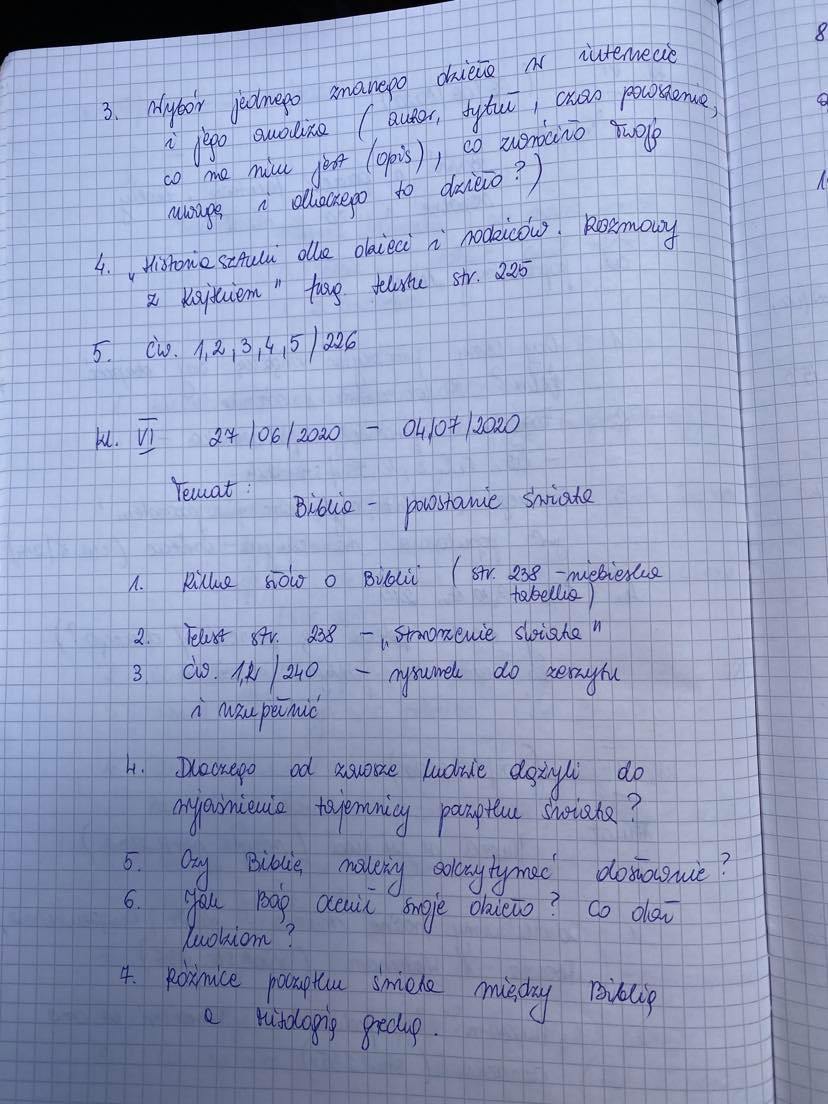 3. Wybór jednego znanego dzieła w internecie
i jego analiza (autor, tytuł, czas powstania,
co na nim jest (opis), co zwróciło Twoją
uwagę i dlaczego to dzieło?)
4. „Historia sztuki dla dzieci i rodziców. Rozmowy
z Kajtkiem" frag tekstu str. 225
5. Ćw. 1,2,3,4,5/226
kl. VI 27/06/2020 - 04/07/2020
Temat:
Biblia - powstanie świata
1. Kilka słów o Biblii (str. 238 - niebieska
tabelka)
2. Tekst str. 238 - „Stworzenie świata"
3 Ćw. 1,2/240 - rysunek do zeszytu
i uzupełnić
4. Dlaczego od zawsze ludzie dążyli do
wyjaśnienia tajemnicy początku świata?
5. Czy Biblię należy odczytywać dosłownie?
6. Jak Bóg ocenił swoje dzieło? Co dał
ludziom?
7. Różnice początku świata między Biblią
a Mitologią grecką.
8